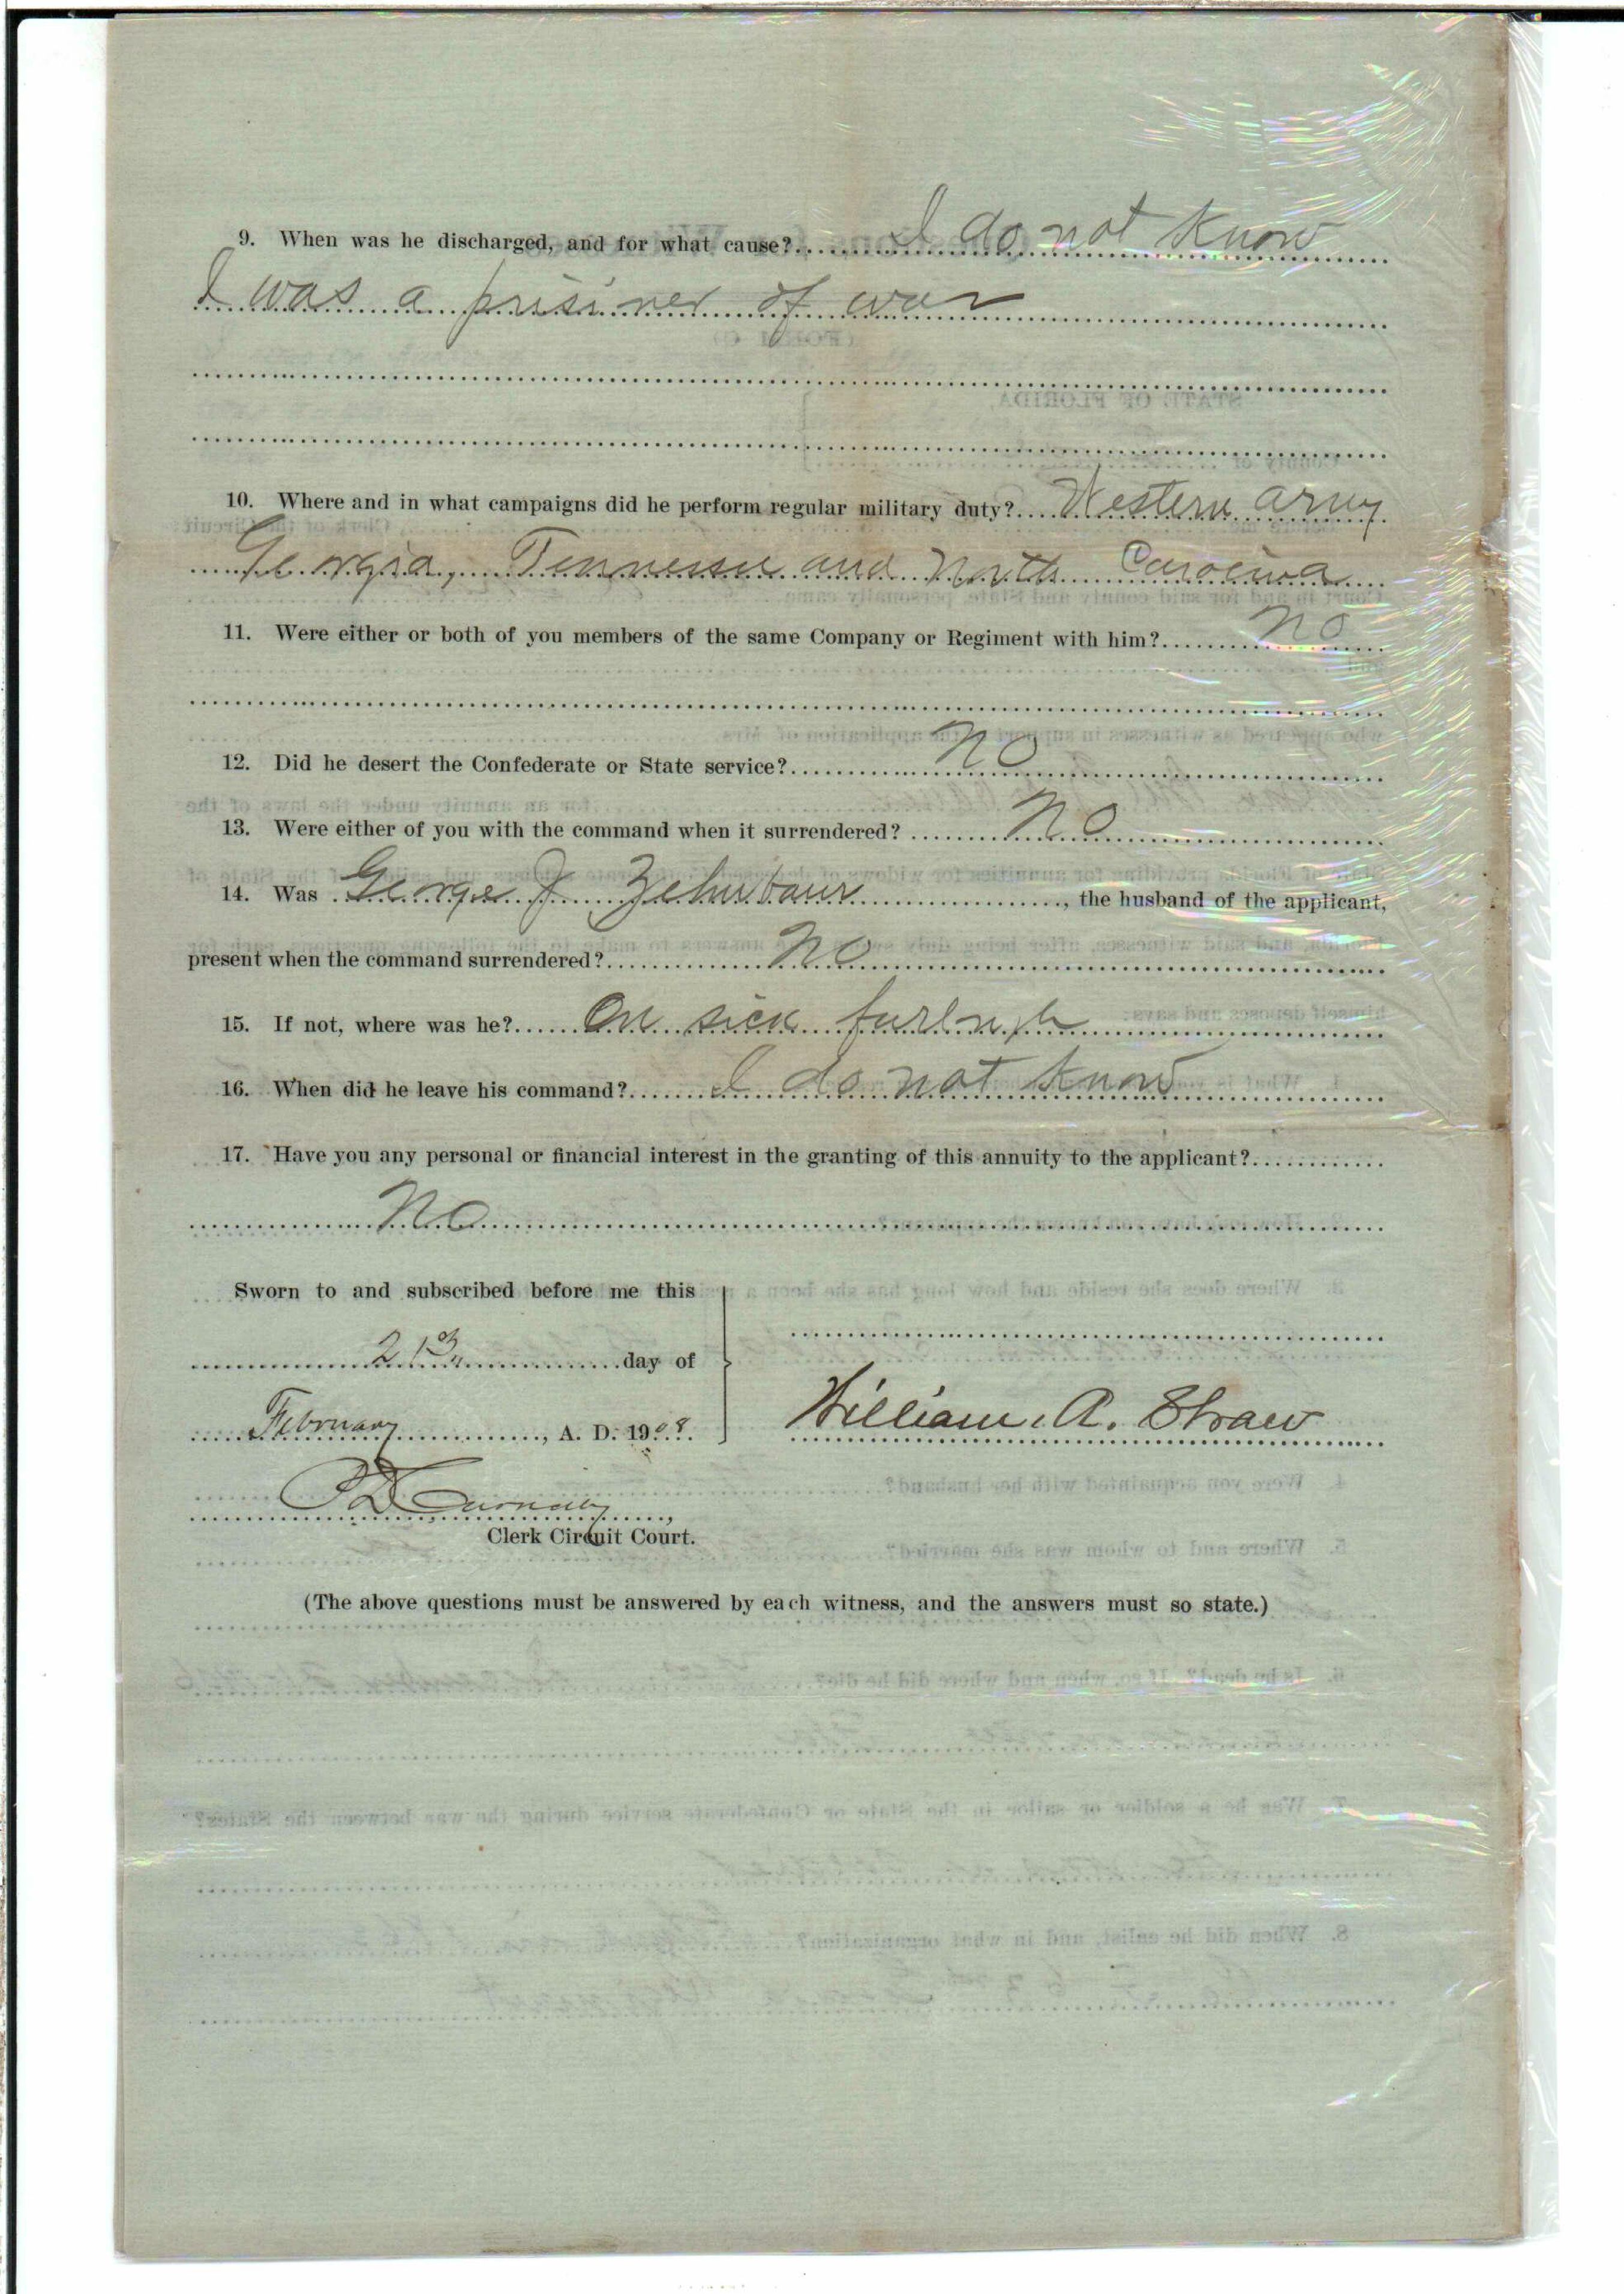 9. When was he discharged, and for what cause? I do not know
I was a prisiner of war
10. Where and in what campaigns did he perform regular military duty? Western army
Georgia, Tennessee and North Carolina
11. Were either or both of you members of the same Company or Regiment with him? No
12. Did he desert the Confederate or State service? No
13. Were either of you with the command when it surrendered? No
14. Was George J. Zehnbaur, the husband of the applicant,
present when the command surrendered? No
15. If not, where was he? On sick furlough
16. When did he leave his command? I do not know
17. Have you any personal or financial interest in the granting of this annuity to the applicant?
No
Sworn to and subscribed before me this
day of
February, A. D. 1908.
William. A. Shaw
Clerk Circuit Court.
(The above questions must be answered by each witness, and the answers must so state.)